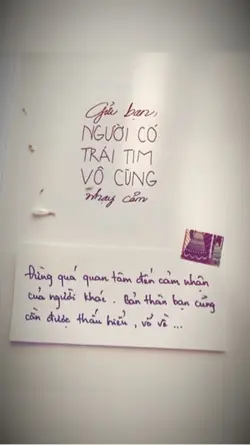 Gửi bạn,
NGƯỜI CÓ
TRÁI TIM
VÔ CÙNG
nhạy cảm
Đừng quá quan tâm đến cảm nhận
của người khác. Bản thân bạn cũng
cần được thấu hiểu, vỗ về ...